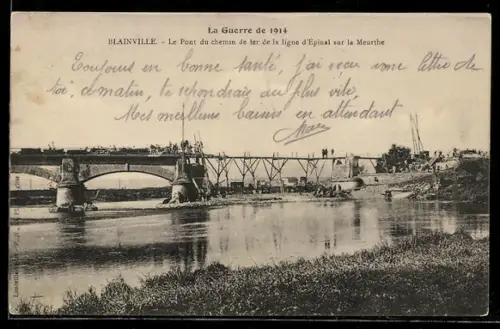 La Guerre de 1914
BLAINVILLE. - Le Pont du chemin de fer de la ligne d'Epinal sur la Meurthe
Toujours en bonne santé, j'ai reçu une lettre de
toi, ce matin, te répondrais au plus vite.
Mes meilleurs baisers en attendant